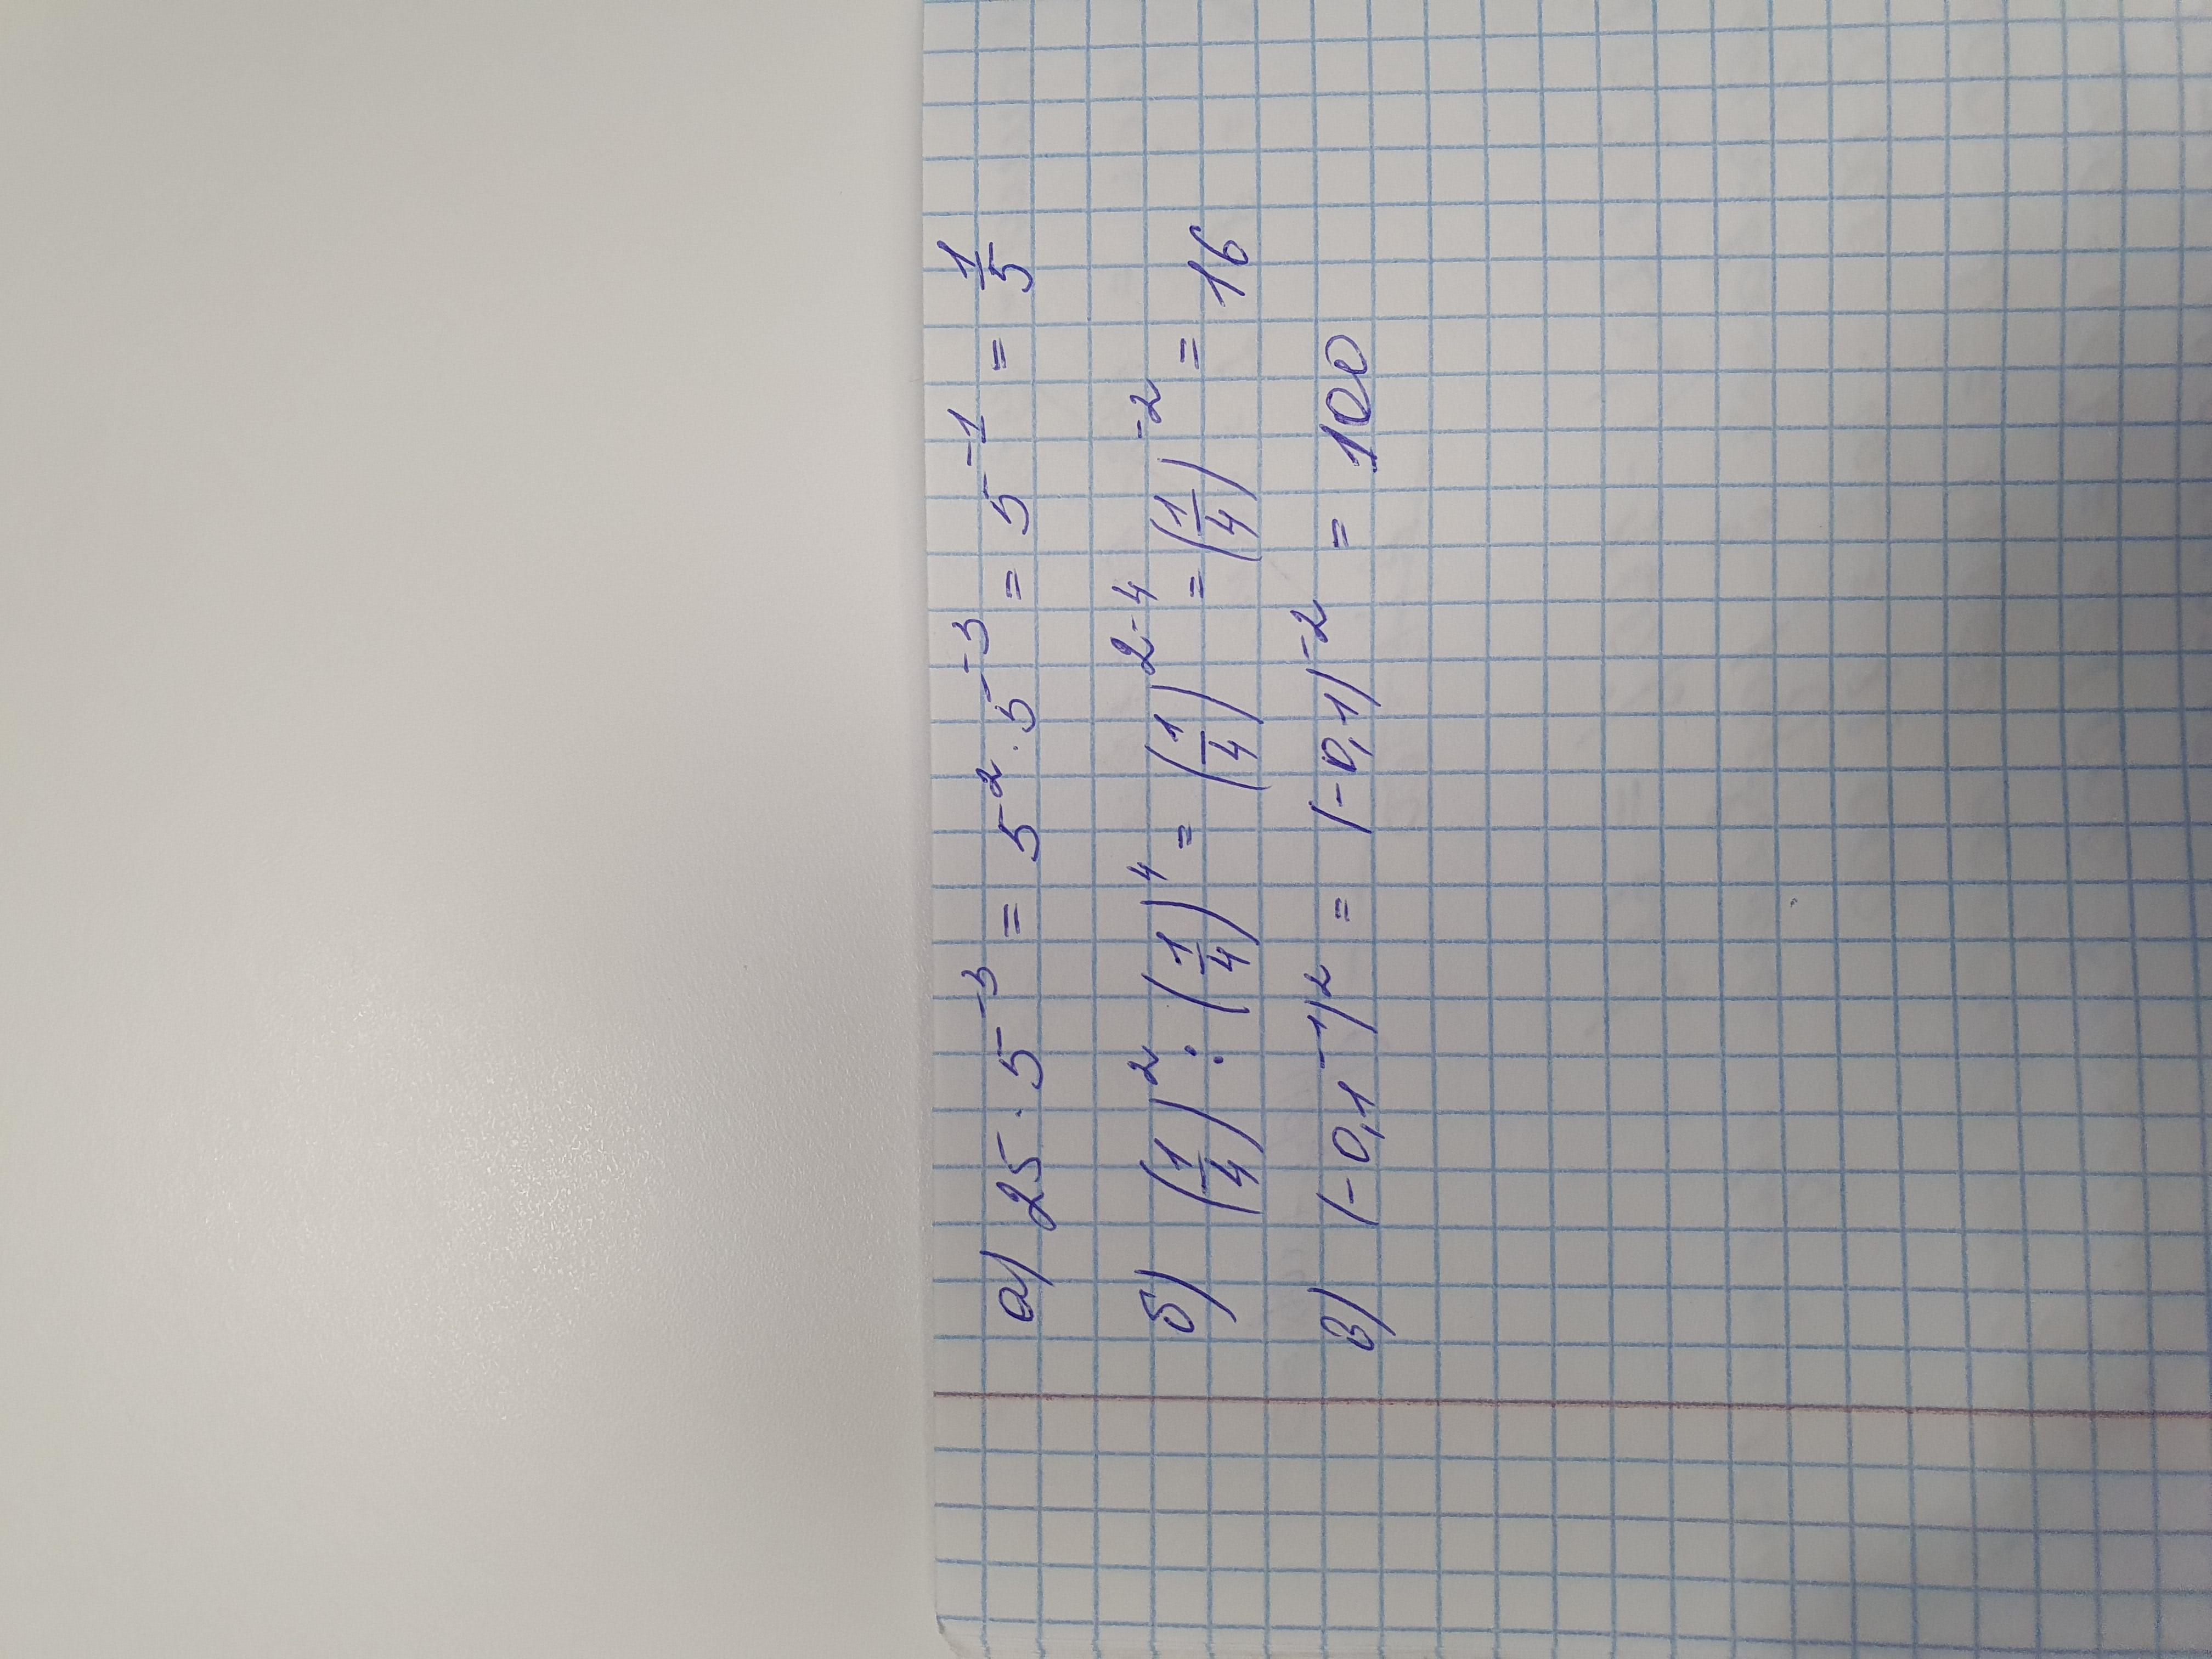 а) 25 · 5⁻³ = 5² · 5⁻³ = 5⁻¹ = 1/5
б) (1/4)² : (1/4)⁴ = (1/4)²⁻⁴ = (1/4)⁻² = 16
в) (-0,1⁻¹)² = (-0,1)⁻² = 100